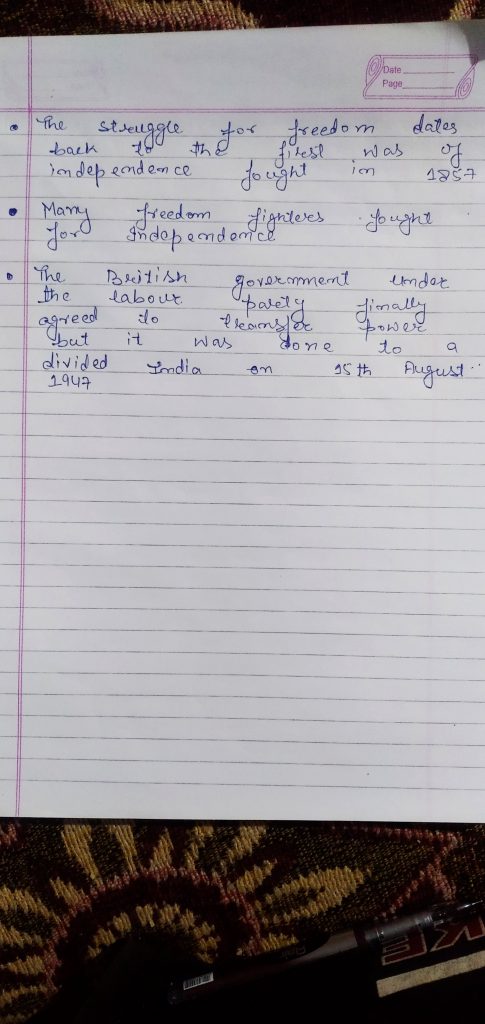 Date
Page
• The struggle for freedom dates
back to the first was of
independence fought in 1857
• Many freedom fighters fought
for Independence
• The British government under
the labour party finally
agreed to transfer power
but it was done to a
divided India on 15th August
1947
KE